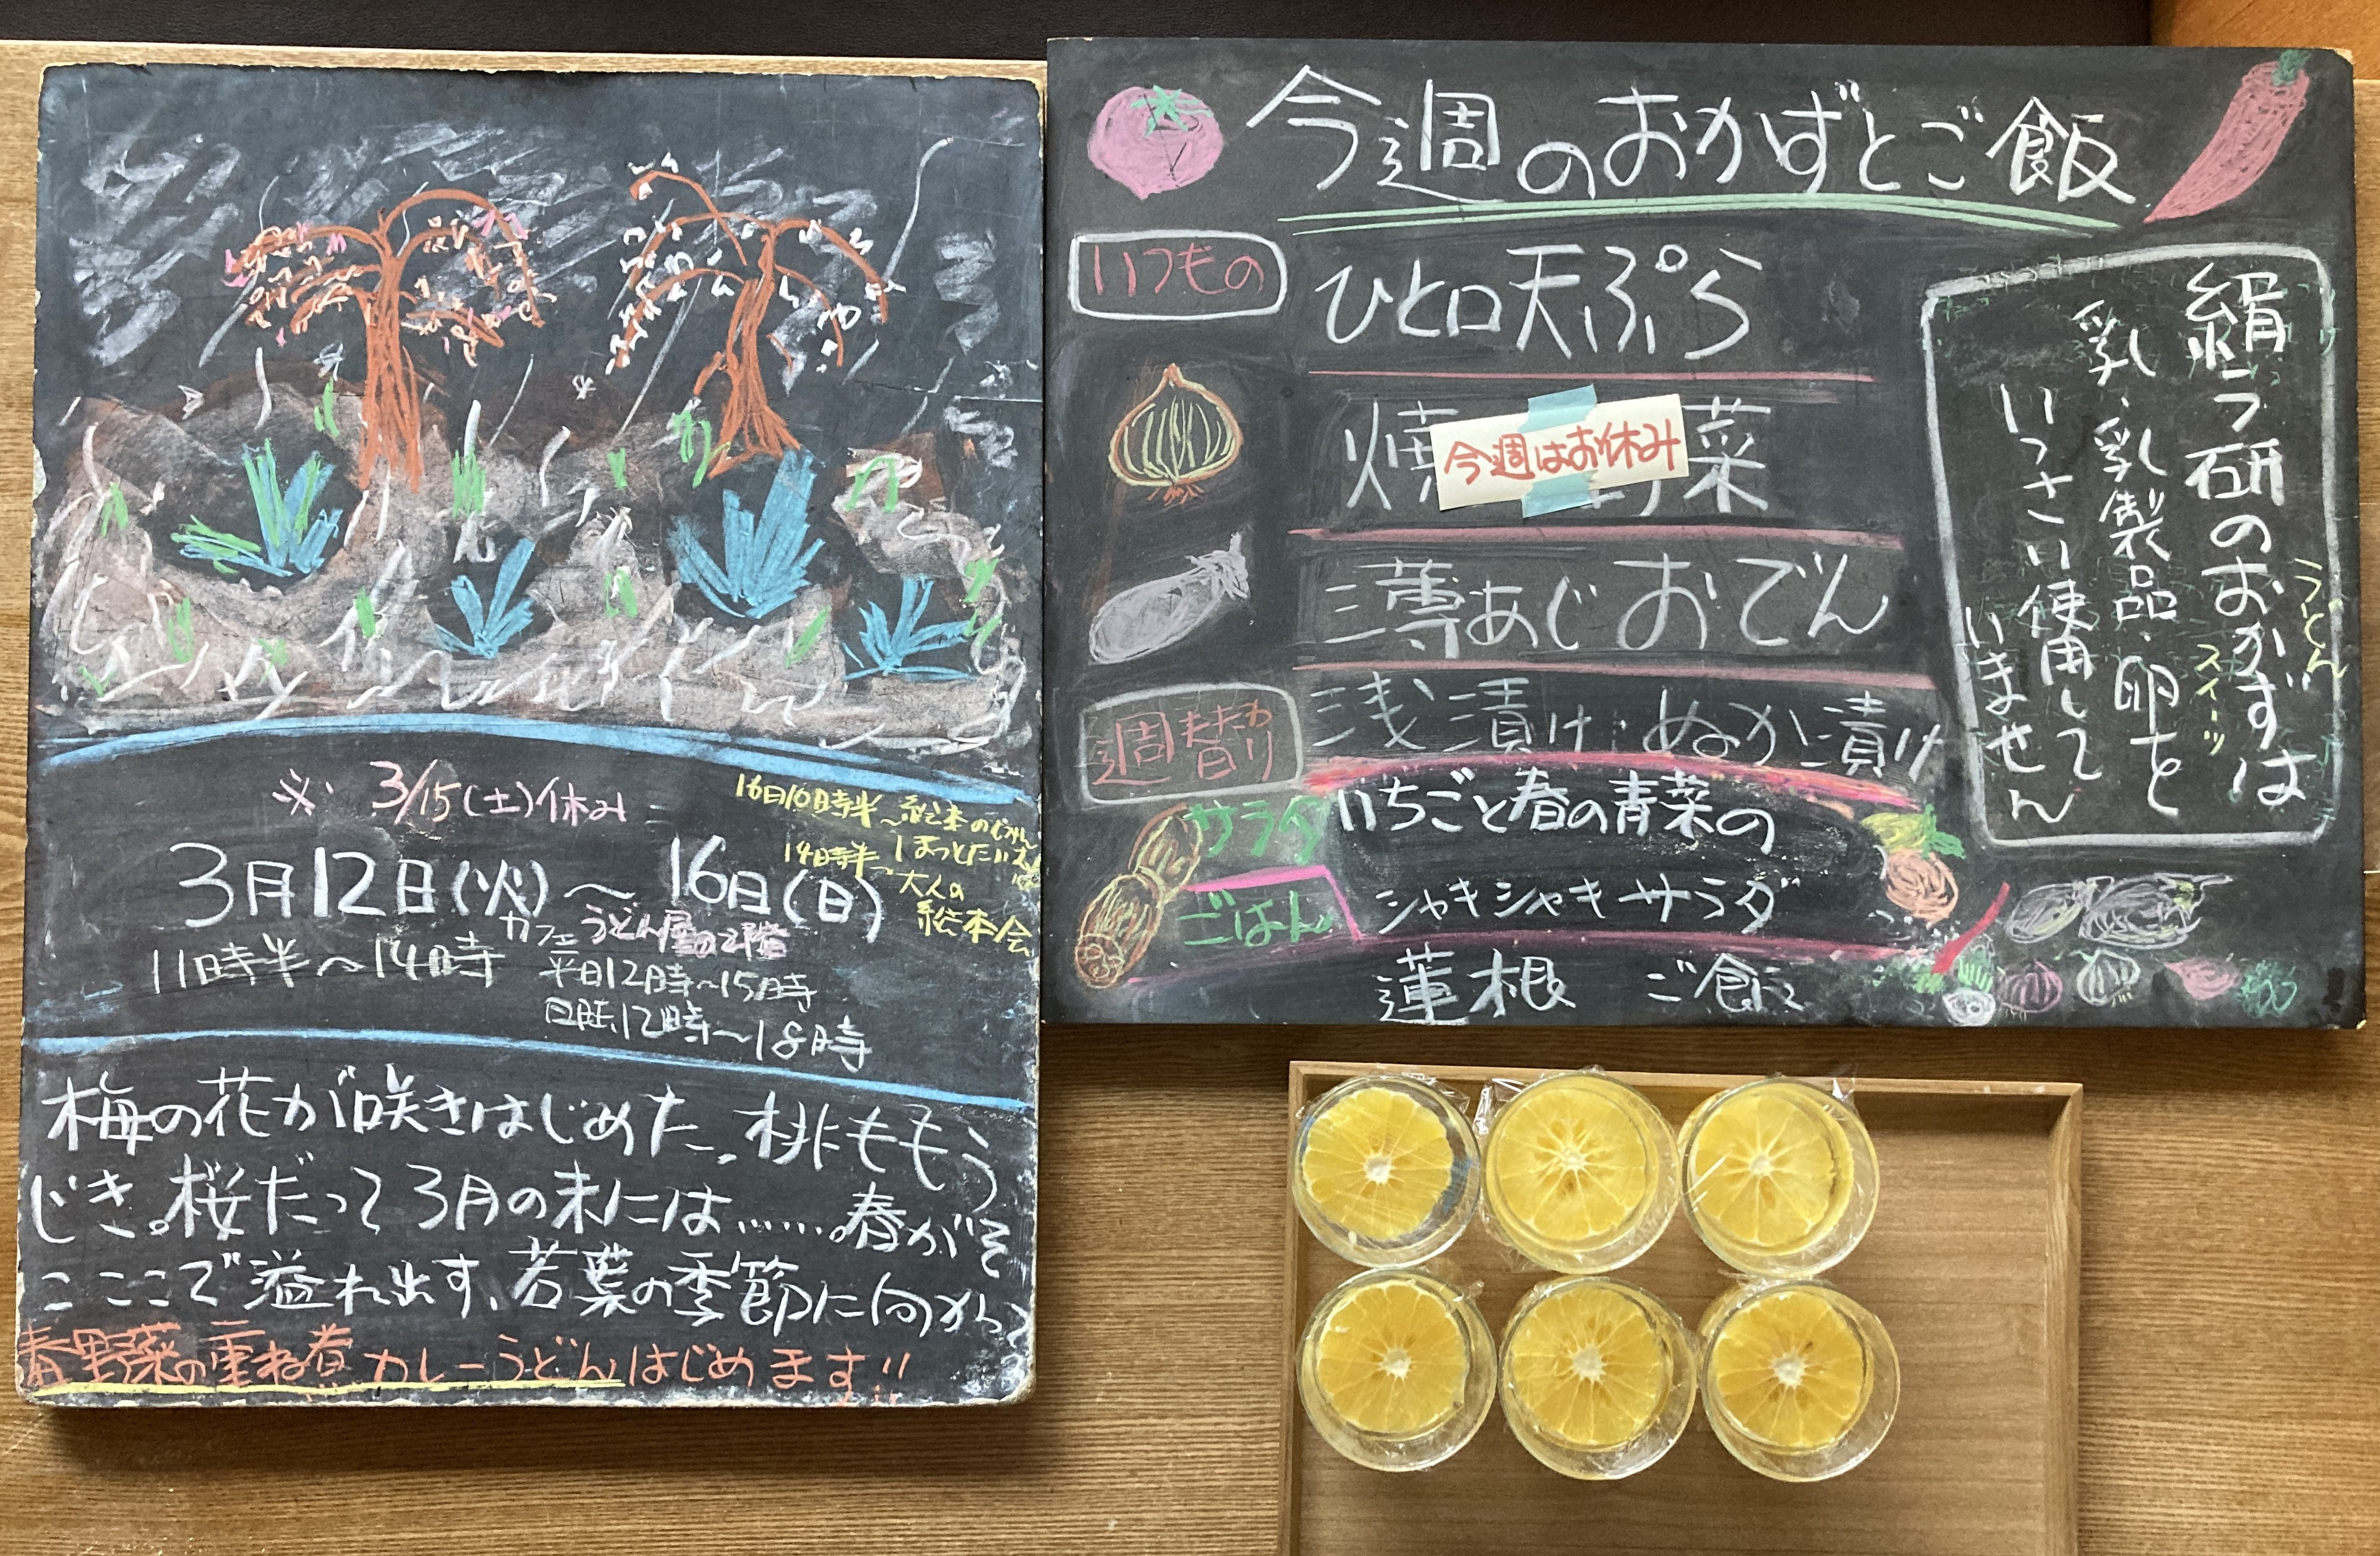 ※ 3/15(土)休み
16日10時半〜絵本のじかん
14時半〜大人の
絵本会
3月12日(火)〜16日(日)
11時半〜14時
カフェ うどん屋の2階
平日12時〜15時
日曜12時〜18時
梅の花が咲きはじめた。桃ももう
じき。桜だって3月の末には……。春がそ
こここで溢れ出す、若葉の季節に向かって
春野菜の重ね煮カレーうどんはじめます!!
今週のおかずとご飯
いつもの
ひと口天ぷら
焼 野菜
今週はお休み
三尊あじおでん
週替わり
浅漬け・ぬか漬け
サラダ
いちごと春の青菜の
シャキシャキサラダ
ごはん
蓮根 ご飯
絹ラ研のおかずは
うどん
スイーツ
乳・乳製品・卵を
いっさい使用して
いません